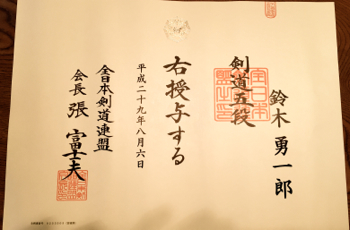 鈴木勇一郎
剣道五段
右授与する
平成二十九年八月六日
全日本剣道連盟
会長 張富士夫